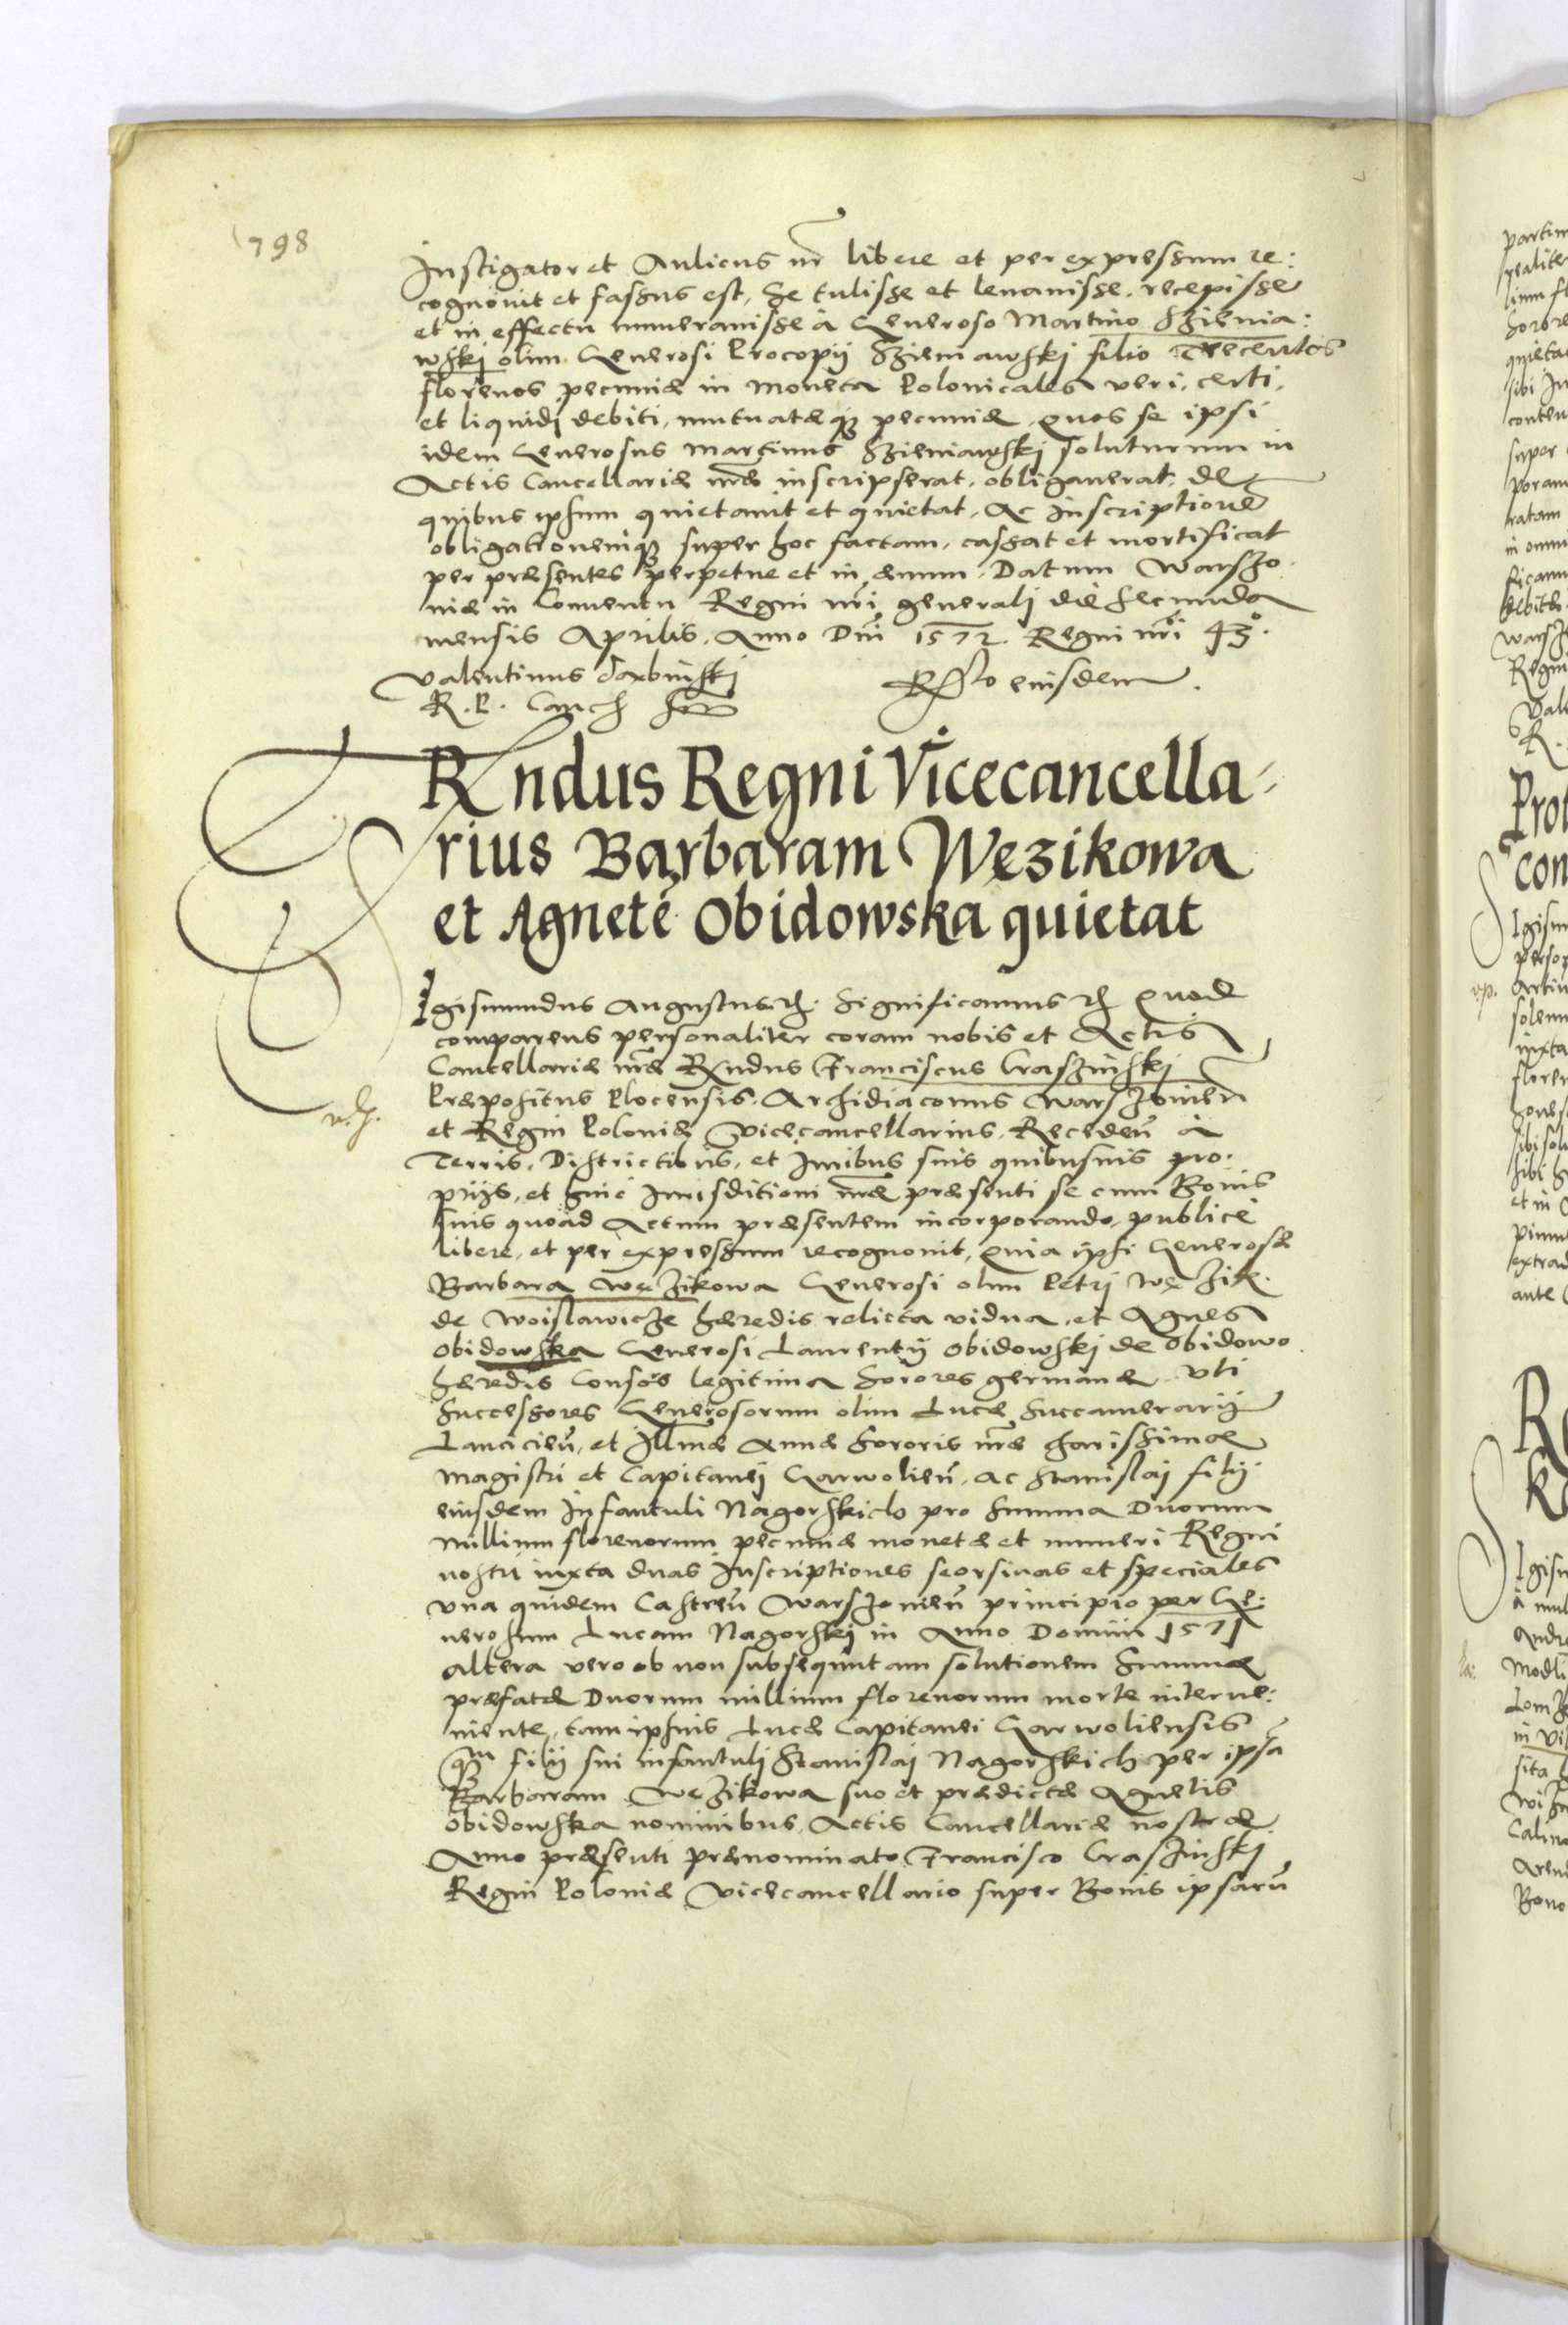 798
Instigator et Aulicus nr̃ libere et per expressum re:
cognouit et fassus est, Se tulisse et leuauisse, recepisse
et in effectu numerauisse à Generoso Martino Szienia:
wskj olim Generosi Procopij Szieniawskj filio Trecentos
florenos pecuniæ in moneta Polonicales veri, certi,
et liquidj debiti, mutuatæq3 pecuniæ, quos se ipsi
idem Generosus Martinus Szieniawskj soluturum in
Actis Cancellariæ nr̃æ inscripserat, obligauerat, de
quibus ipsum quietauit et quietat, Ac Inscriptione
obligationemq3 super hoc factam, cassat et mortificat
per præsentes perpetue et in æuum. Datum Warszo
uiæ in Conuentu Regni nr̃i generalj die secunda
mensis Aprilis, Anno Dnĩ 1572. Regni nr̃i 43°.
Valentinus Daxbinskj
R. P. Canch
eiusdem.
Rndus Regni Vicecancella-
rius Barbaram Węzikowa
et Agnetẽ Obidowska quietat
Igismundus Augustus Significamus Quod
comparens personaliter coram nobis et Actis
Cancellariæ nr̃æ Rndus Franciscus Craszinskj
Præpositus Plocensis, Archidiaconus Warszouien
et Regni Poloniæ Vicecancellarius, Recedeñ à
Terris, Districtibus, et Iuribus suis quibusuis pro
prijs, et huic Iurisditioni nr̃æ præsenti se cum Bonis
suis quoad Actum præsentem incorporando, publice
libere, et per expressum recognouit, quia ipsi Generosæ
Barbara Węzikowa Generosi olim Petrj Węzik
de Woislawicze hæredis relicta vidua, et Agnes
Obidowska Generosi Laurentij Obidowskj de Obidowo
hæredis Consors legitima sorores germanæ vti
Successores Generosorum olim Lucæ Succamerarij
Lancicieñ, et Illmæ Annæ Sororis nr̃æ charissimæ
Magistri et Capitanej Garwolieñ, ac Stanislaj filij
eiusdem infantuli Nagorskich pro summa Duorum
millium florenorum pecuniæ monetæ et numeri Regni
nostri iuxta duas Inscriptiones seorsiuas et speciales
vna quidem Castreñ Warszouieñ principio per Ge:
nerosum Lucam Nagorskj in Anno Domini 1571
altera vero ob non subsequutam solutionem summæ
præfatæ Duorum millium florenorum morte interue:
niente, tam ipsius Lucæ Capitanei Garwoliensis
q3m filij sui infantulj Stanislaj Nagorskich per ipsã
Barbaram Węzikowa suo et prædictæ Agnetis
Obidowska nominibus, Actis Cancellariæ nostræ
Anno præsenti prænominato Francisco Craszinskj
Regni Poloniæ Vicecancellario super Bonis ipsarũ